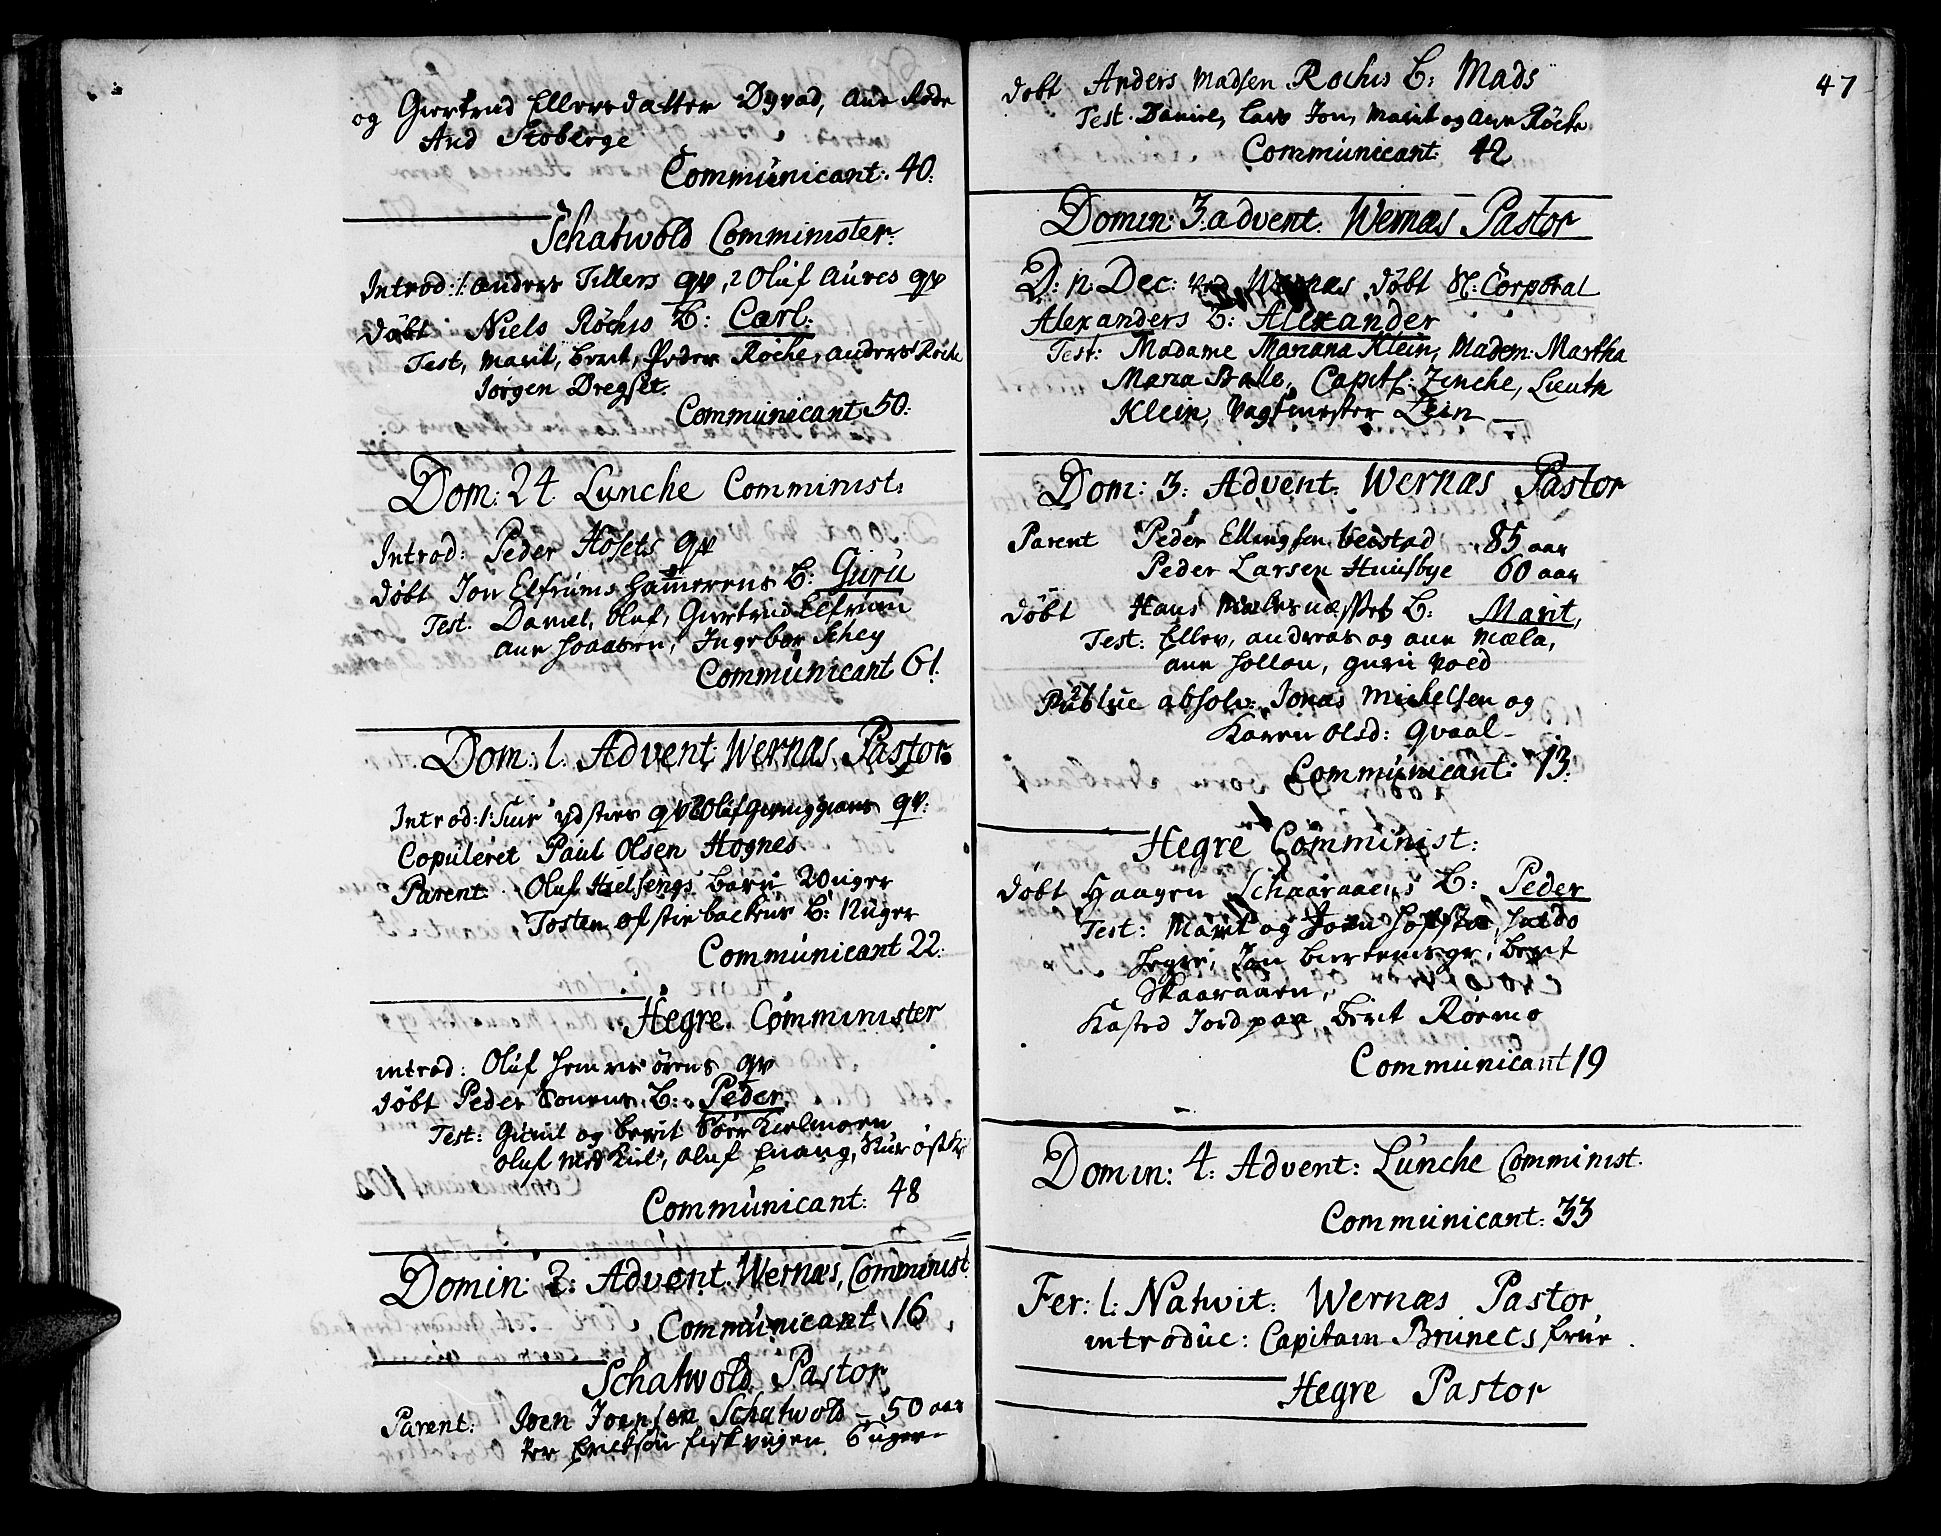 og Giertrud Ellevsdatter Dyvad, Ane Røde
And Stoberge
Communicant. 40.
Schatwold Comminister.
Introd: 1. Anders Tillers qv, 2 Oluf Aunes qv
døbt Niels Røches B: Carl.
Test, Marit, Berit, Peder Røche, Anders Røche
Jørgen Dregset.
Communicant. 50.
Dom: 24 Lunche Comminist:
Introd: Peder Hosets qv
døbt Jon Elfrums hamerens B: Guru
Test. Daniel, Oluf, Giertrud Elfrum
Ane Ingebor Schey
Communicant 61.
Dom: 1. Advent. Wernæs Pastor.
Introd: 1. ydsties qv 2 Oluf qv.
Copuleret Paul Olsen Hognes
Parent. Oluf Barn 2 Uger
Tosten ofstie backens B: 1 Uger
Communicant 22.
Hegre. Comminister
introd: Oluf qv
døbt Peder Sonens B: Peder.
Test: Gunil og Berit Kielmoen
Oluf Kiel, Oluf
Communicant: 48
Domin: 2: Advent. Wernæs, Comminist
Communicant 16
Schatwold Pastor
Parent: Joen Joensen Schatwold - 50 aar
Per Ericksøn 6 uger
47
døbt Anders Madsen Roches B: Mads
Test. Daniel, Lars Jon, Marit og Ane Røche
Communicant: 42
Domin: 3. advent. Wernæs Pastor
D: 12. Dec: ved Wernæs døbt Sl: Corporal
Alexanders B: Alexander
Test: Madame Mariana Klein, Madem: Martha
Maria Balle, Capitl: Zinche, Lieutn
Klein, Vagtmester Lein
Dom: 3: Advent. Wernæs Pastor
Parent Peder Ellingsen beistad 85 aar
Peder Larsen Huusbye 60 aar
døbt Hans B: Marit,
Test: Ellev, Andreas og Ane Mæla,
Ane Hollan, Guru Vold
Publice absolv: Jonas Michelsen og
Karen Olsd: Qvaal
Communicant: 13.
Hegre Comminist:
døbt Haagen Schaaraaens B: Peder
Test: Marit og Joen
Hegre, Jon Berit
Skaaraaen,
Kasted Jord paa Berit Rørmo
Communicant 19
Domin: 4: Advent: Lunche Comminist.
Communicant: 33
Fer: 1: Natvit: Wernæs Pastor
introduc: Capitain Brunets frue.
Hegre Pastor